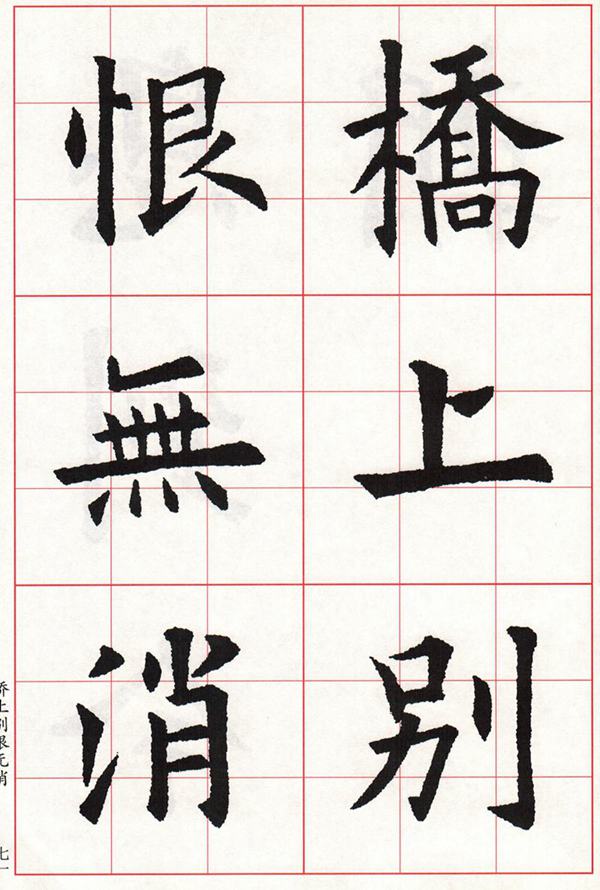 橋上别
恨無消
桥上别恨无消
七一